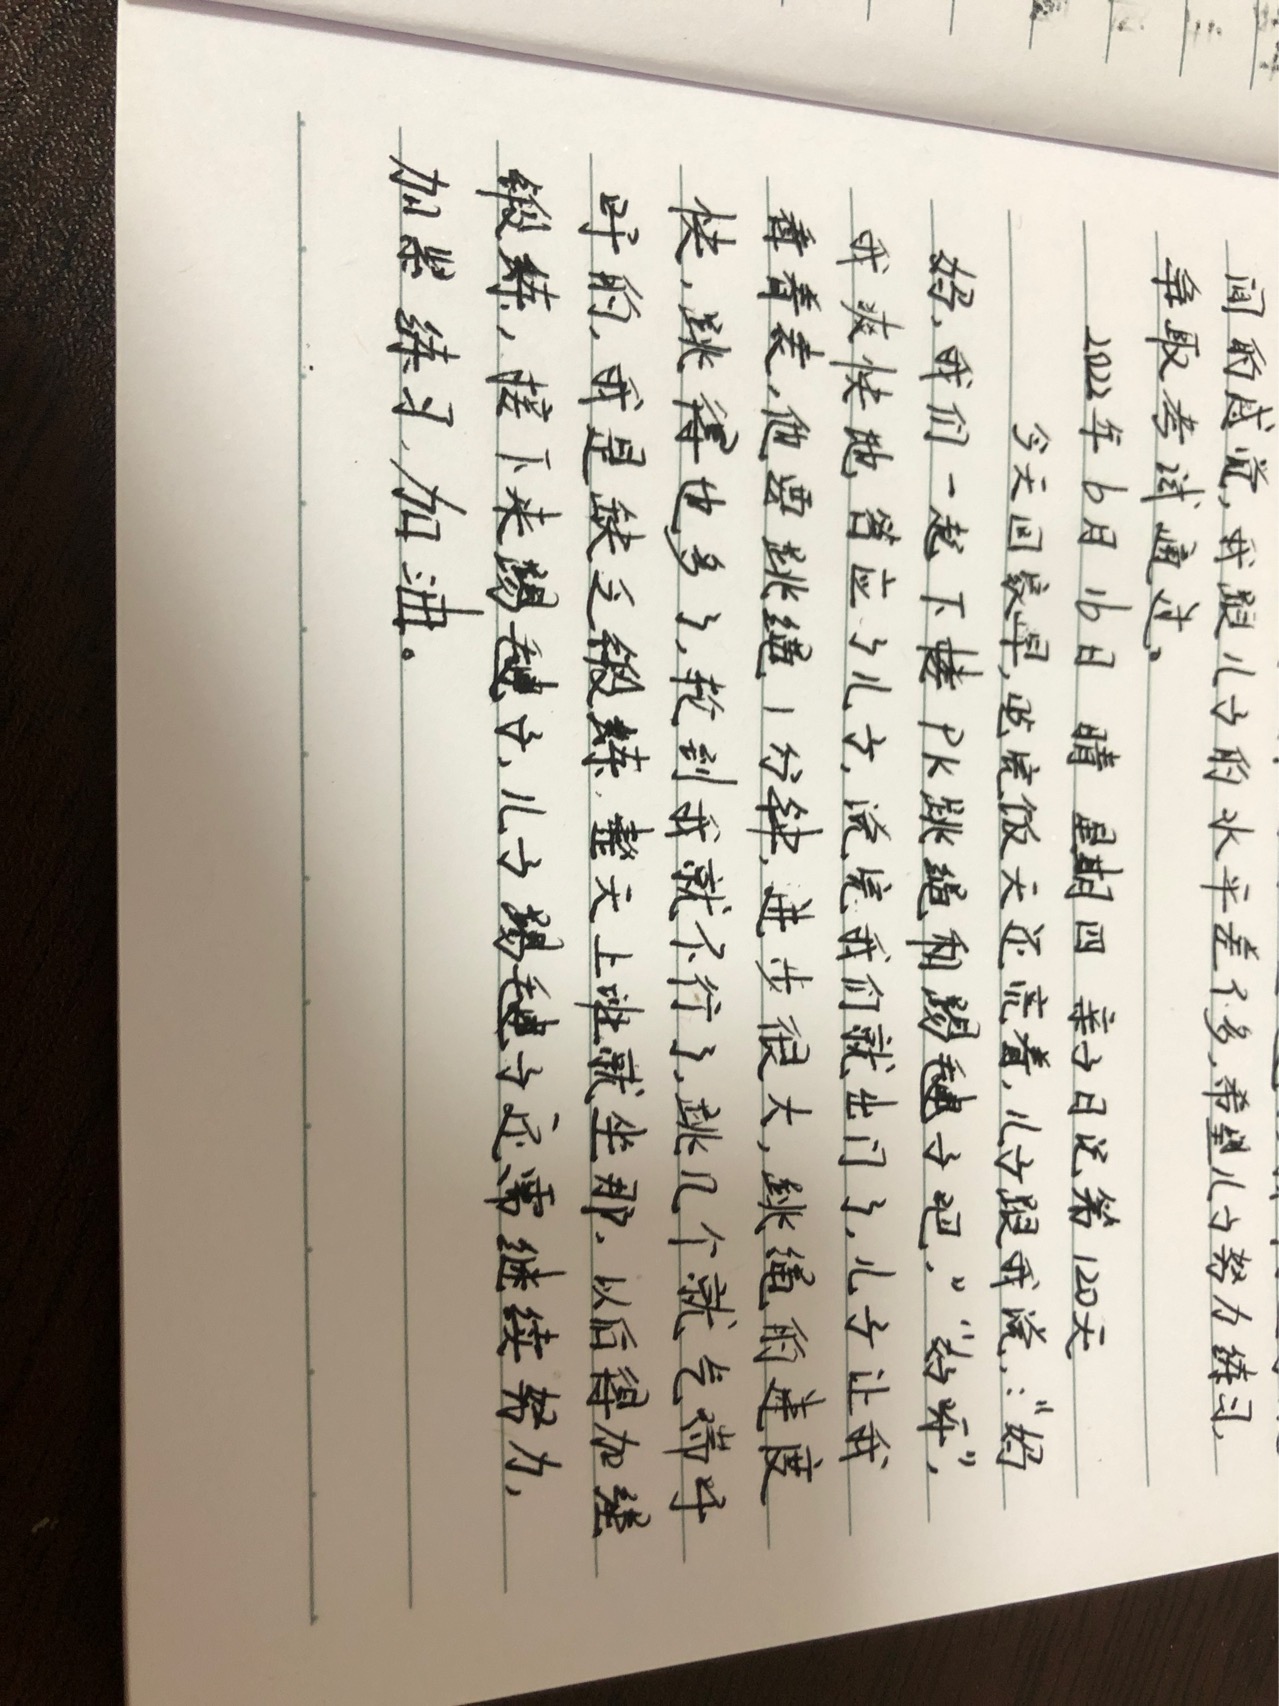 间的感觉，我跟儿子的水平差不多，希望儿子努力练习，
争取考试通过。
2022年6月16日 晴 星期四 亲子日记第120天
今天回家早，吃完饭天还亮着，儿子跟我说：“妈
妈，我们一起下楼PK跳绳和踢毽子吧。”“好呀”，
我爽快地答应了儿子，说完我们就出门了，儿子让我
看着表，他要跳绳1分钟，进步很大，跳绳的速度
快，跳得也多了，轮到我就不行了，跳几个就气喘吁
吁的，我是缺乏锻炼，整天上班就坐那，以后得加强
锻炼，接下来踢毽子，儿子踢毽子还需继续努力，
加紧练习，加油。